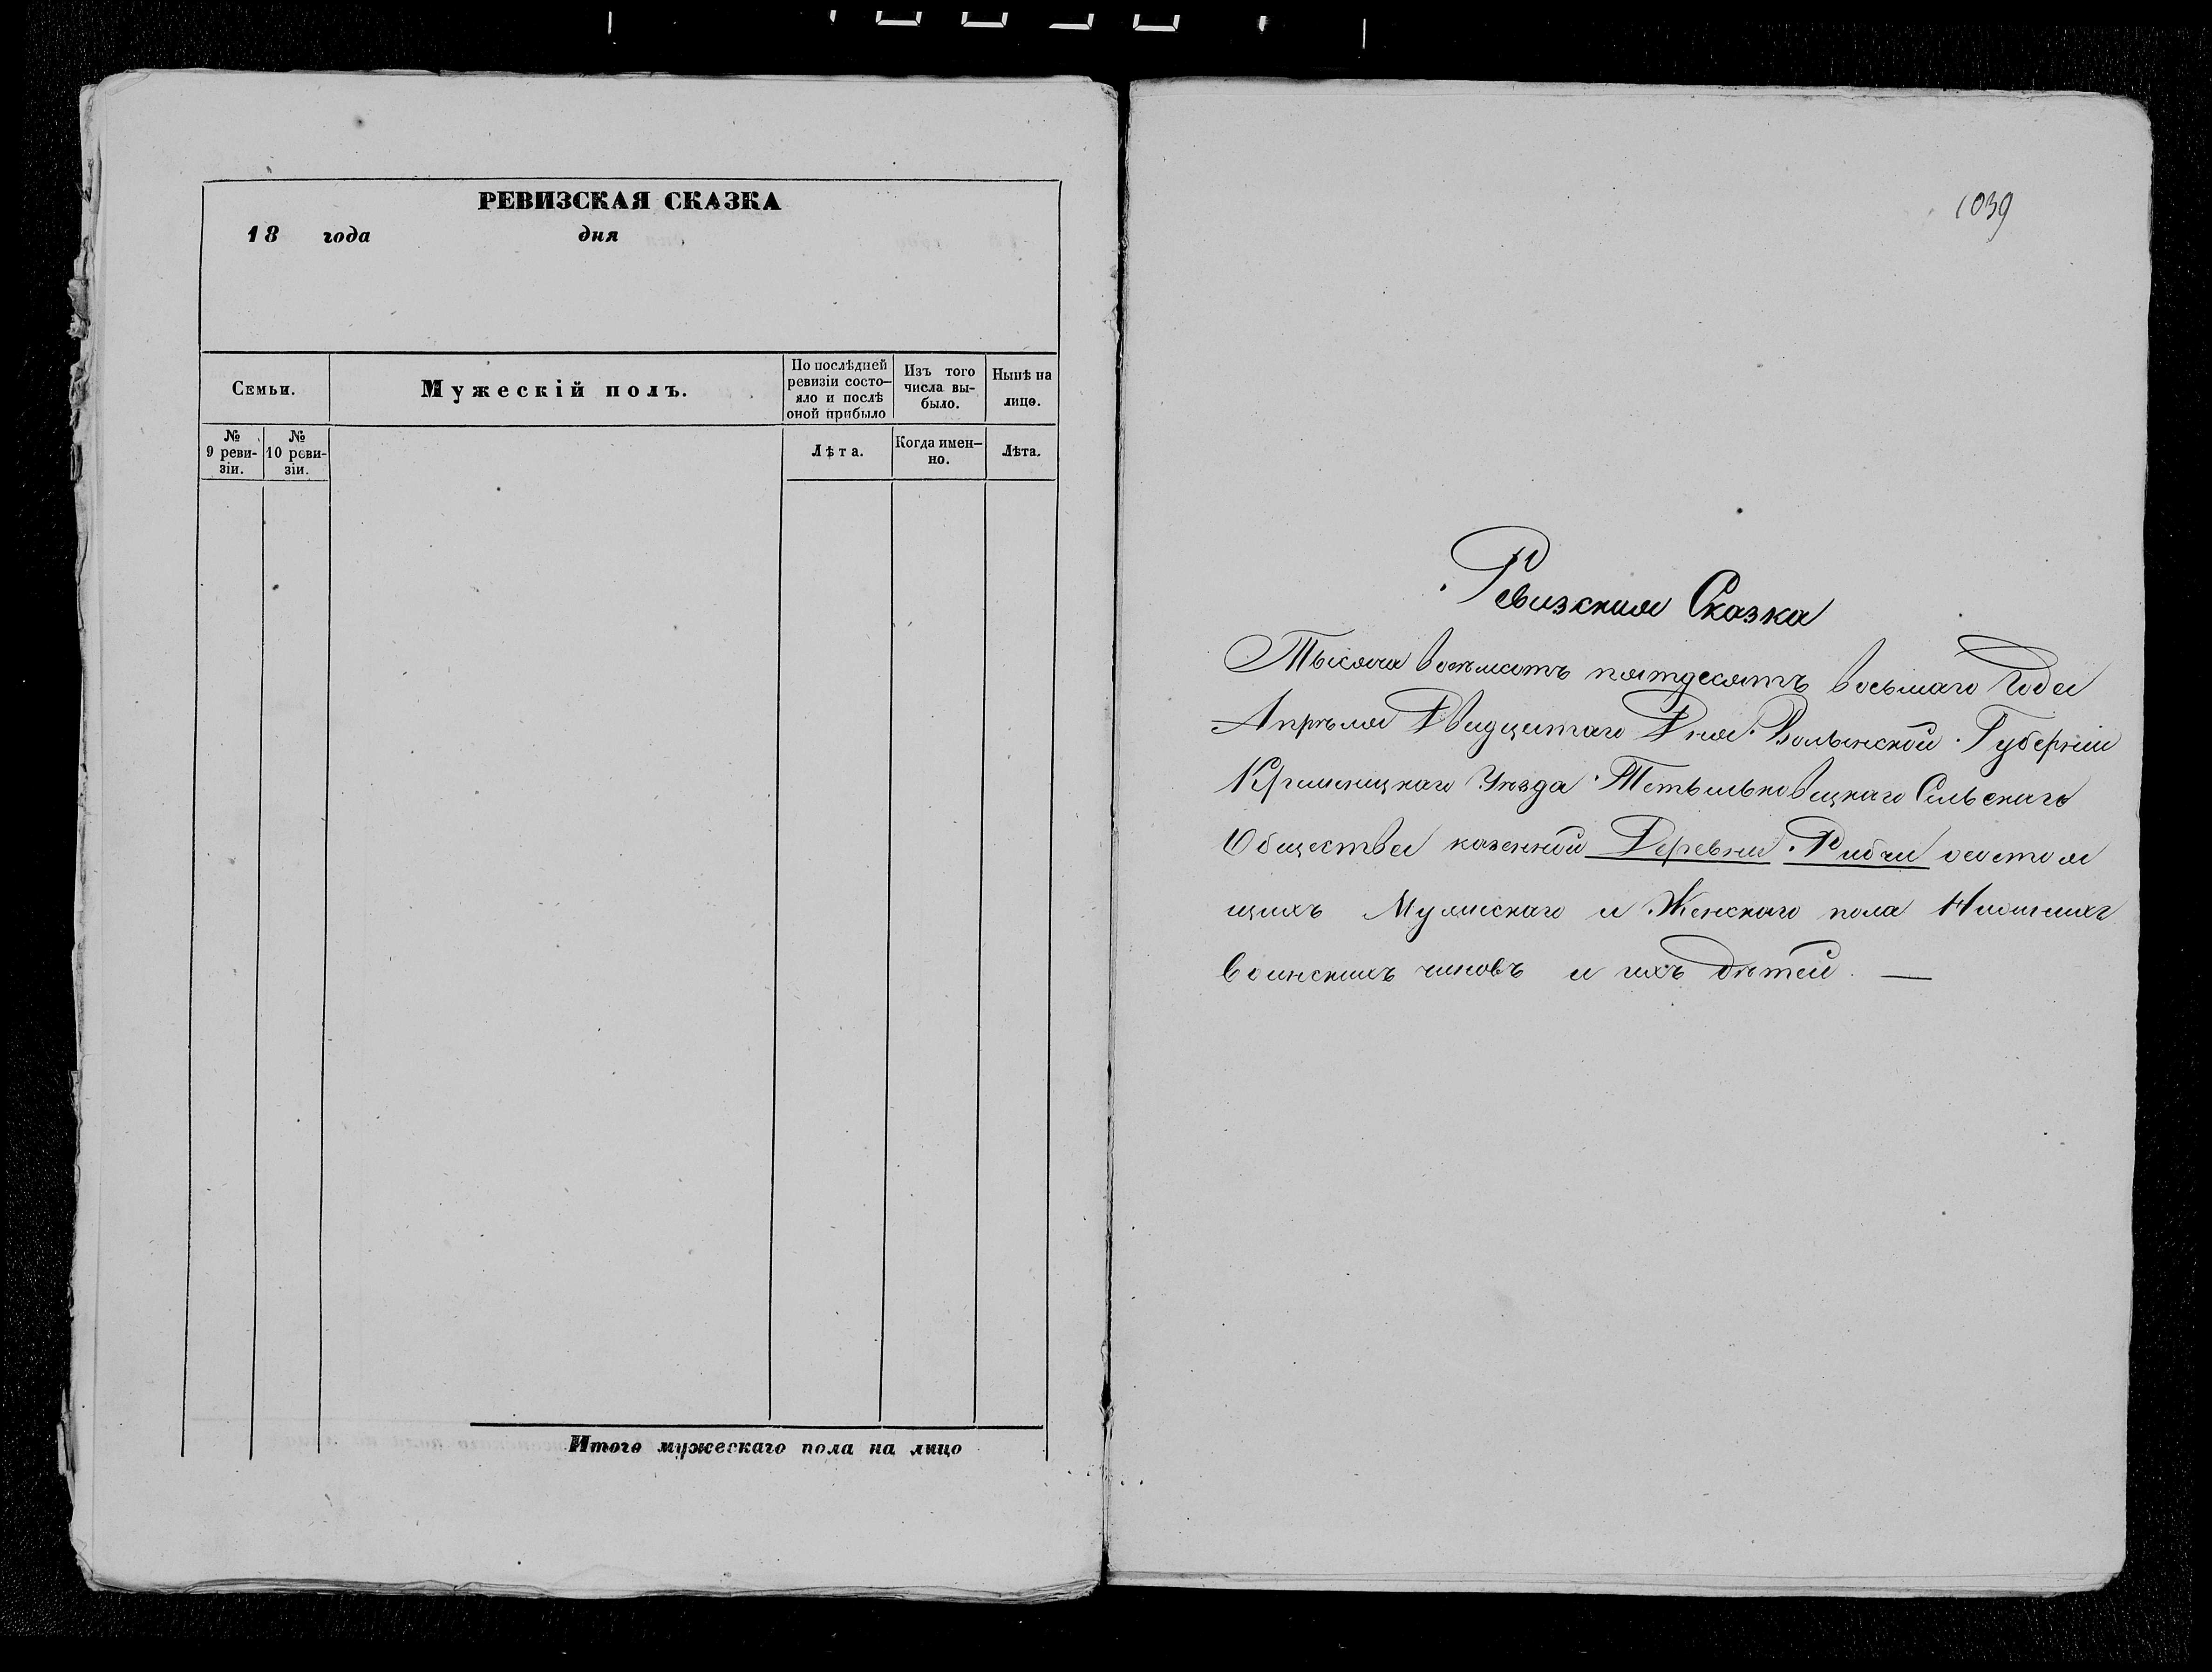 РЕВИЗСКАЯ СКАЗКА
18 года дня
Семьи.
Мужескій полъ.
По послѣдней
ревизіи состо-
яло и послѣ
оной прибыло
Изъ того
числа вы-
было.
Нынѣ на
лицо.
№
9 реви-
зіи.
№
10 реви-
зіи.
Лѣта.
Когда имен-
но.
Лѣта.
Итого мужескаго пола на лицо
1039
Ревизская Сказка
Тысяча восемьсотъ пятдесятъ восьмаго Года
Апрѣля Двадцатаго Дня Волынской Губерніи
Кременицкаго Уѣзда Тетыльковецкаго Сельскаго
Общества казенной Деревни Рибчи состоя
щихъ Мужескаго и Женскаго пола Нижнихъ
воинскихъ чиновъ и ихъ дѣтей. —